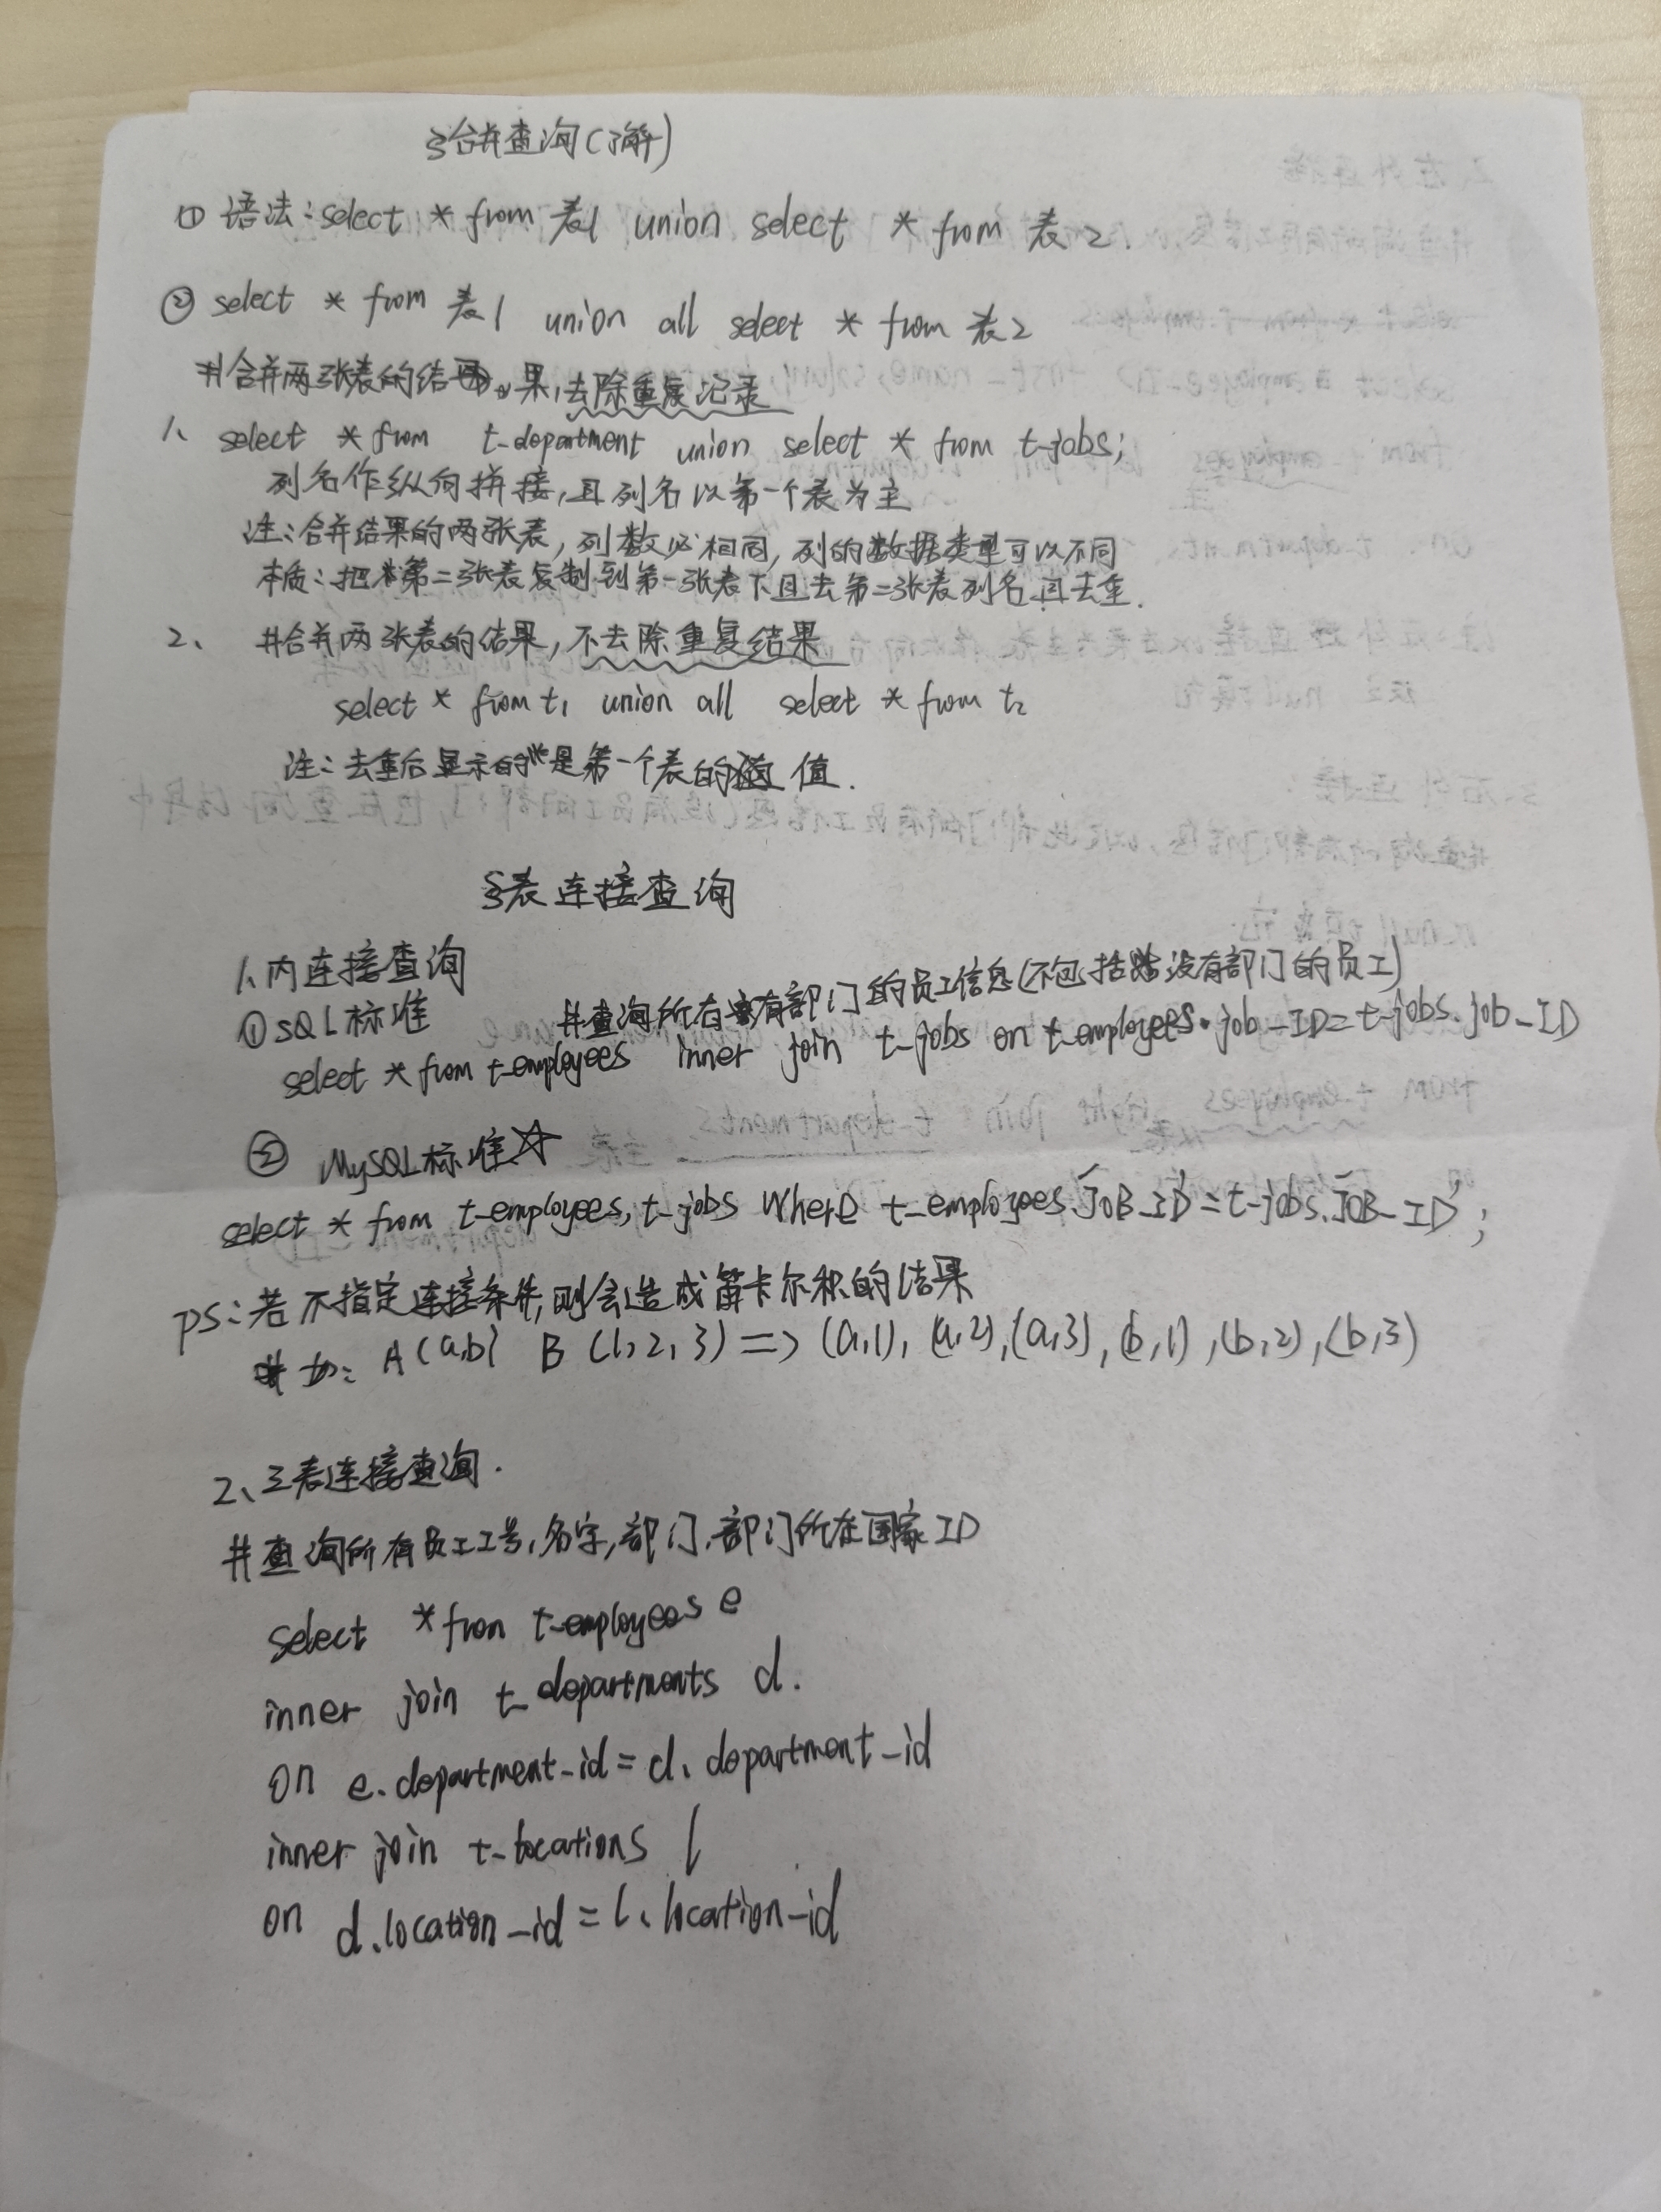 §合并查询(了解)
① 语法:select * from 表1 union select * from 表2.
② select * from 表1 union all select * from 表2
#合并两张表的结果,去除重复记录
1、select * from t_department union select * from t_jobs;
列名作纵向拼接,且列名以第一个表为主
注:合并结果的两张表,列数必相同,列的数据类型可以不同
本质:把第二张表复制到第一张表下且去第二张表列名,再去重.
2、#合并两张表的结果,不去除重复结果
select * from t1 union all select * from t2
注:去重后显示的是第一个表的值.
§表连接查询
1、内连接查询
①SQL标准 #查询所有有部门的员工信息(不包括没有部门的员工)
select * from t_employees inner join t_jobs on t_employees.job_ID=t_jobs.job_ID
② MySQL标准☆
select * from t_employees, t_jobs where t_employees.JOB_ID=t_jobs.JOB_ID;
ps:若不指定连接条件,则会造成笛卡尔积的结果
如: A(a,b) B(1,2,3)=>(a,1),(a,2),(a,3),(b,1),(b,2),(b,3)
2、三表连接查询.
#查询所有员工工号,名字,部门,部门所在国家ID
select * from t_employees e
inner join t_departments d.
on e.department_id=d.department_id
inner join t_locations l
on d.location_id=l.location_id